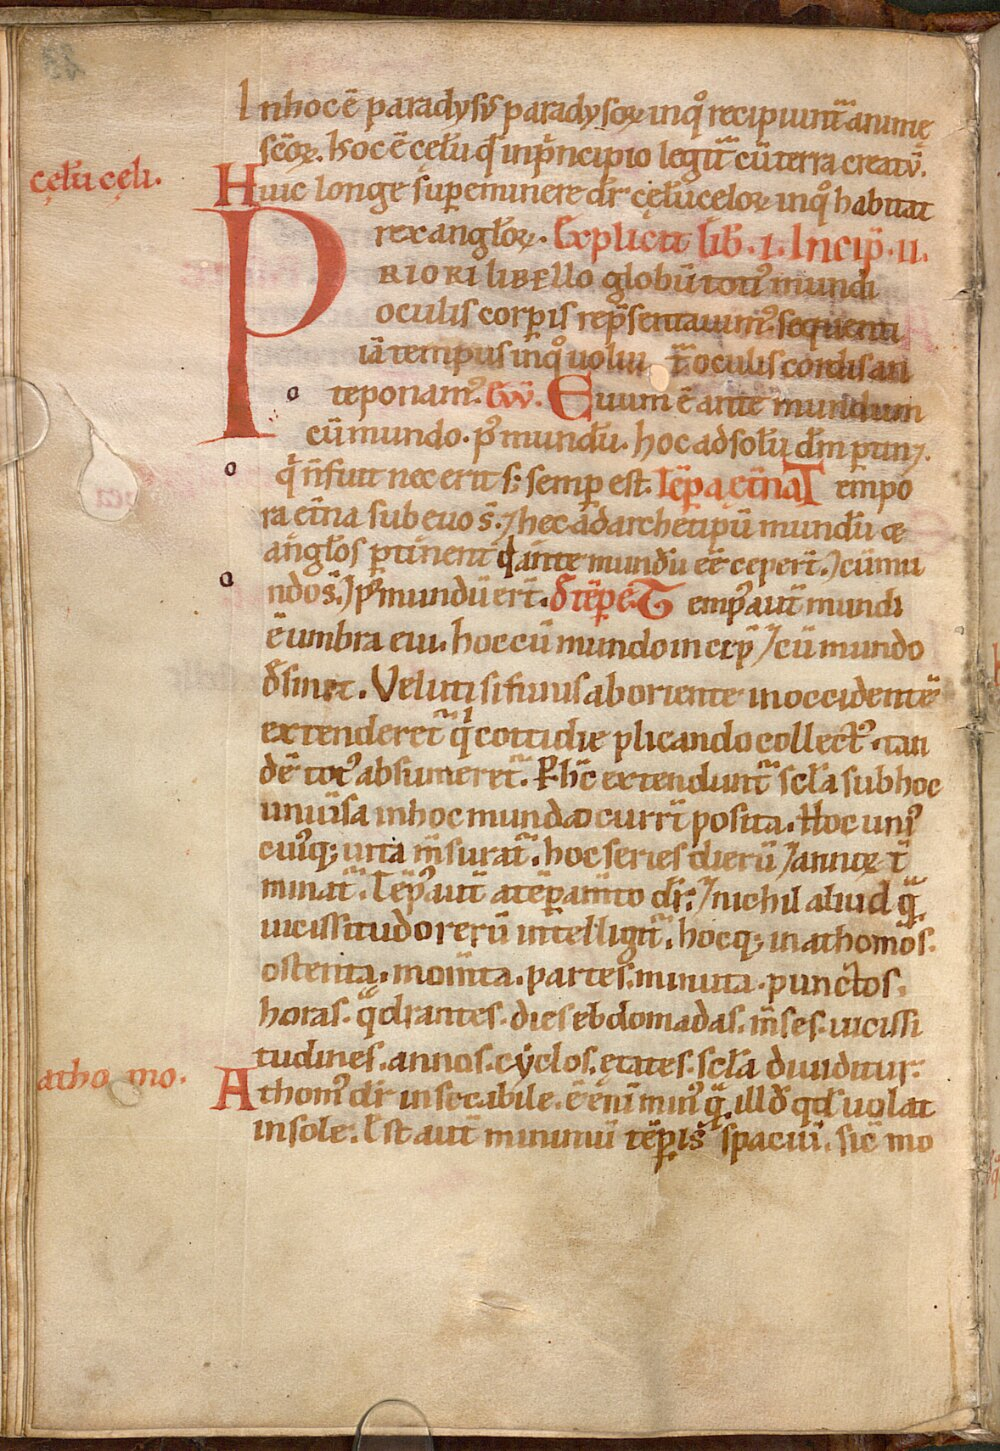 In hoc ē paradysꝰ paradysoꝝ inqͦ recipiunt᷑ animę
sc̄oꝝ. hoc ē cęlū qͥ in pͥncipio legit᷑ cū terra creatū.
cęlū cęli.
Huic longe supeminere dr̄ cęlū celoꝝ inqͦ habitat
rex angl̄oꝝ. Explicit lib̄. i. Incip̄. ii.
PRIORI liBEllo globū totiꝰ mundi
oculis corꝑis rep̄sentauimꝰ. sequenti
iā tempus inqͦ uoluit᷑ oculis cordis an
teponamꝰ. Euum ē ante mundum
cū mundo. pꝰ mundū. hoc ad solū dm̄ ꝑtinꝫ.
qͥ n̄ fuit nec erit sꝫ semꝑ est. Tēꝑa et̄na Tempo
ra et̄na sub euo s̄. ⁊ hec ad archetipū mundū ⁊
angl̄os ꝑtinent q̄ ante mundū ēē ceper̄t. ⁊ cū mu
ndo s̄. ⁊ pꝰ mundū er̄t. d̄ tēꝑe. Tempꝰ aut̄ mundi
ē umbra eui. hoc cū mundo incep̄ ⁊ cū mundo
d̄sinet. Veluti si funis ab oriente in occidentē
extenderet᷑ qͥ cottidie plicando collectꝰ. tan
dē totꝰ absumeret᷑. P hc̄ extendunt᷑ scl̄a sub hoc
uniūsa in hoc mundo currīt posita. Hoc uniꝰ
cuiꝰqꝫ uita m̄surat᷑. hoc series dierū ⁊ annoꝝ t̄
minat᷑. Tēpꝰ aut̄ a tēꝑam̄to dr̄. ⁊ nichil aliud qͣ̄
uicissitudo rerū intelligit᷑. hocqꝫ in athomos.
ostenta. mom̄ta. partes. minuta. punctos.
horas. qͣdrantes. dies ebdomadas. m̄ses. uicissi
tudines. annos. cyclos. ętates. scl̄a diuiditur.
atho mo.
Athomꝰ dr̄ insecabile. ē enī minꝰ qͣ̄ illd̄ qd̄ uolat
in sole. Est aut̄ minimū tēꝑis spaciū. sic̄ mo